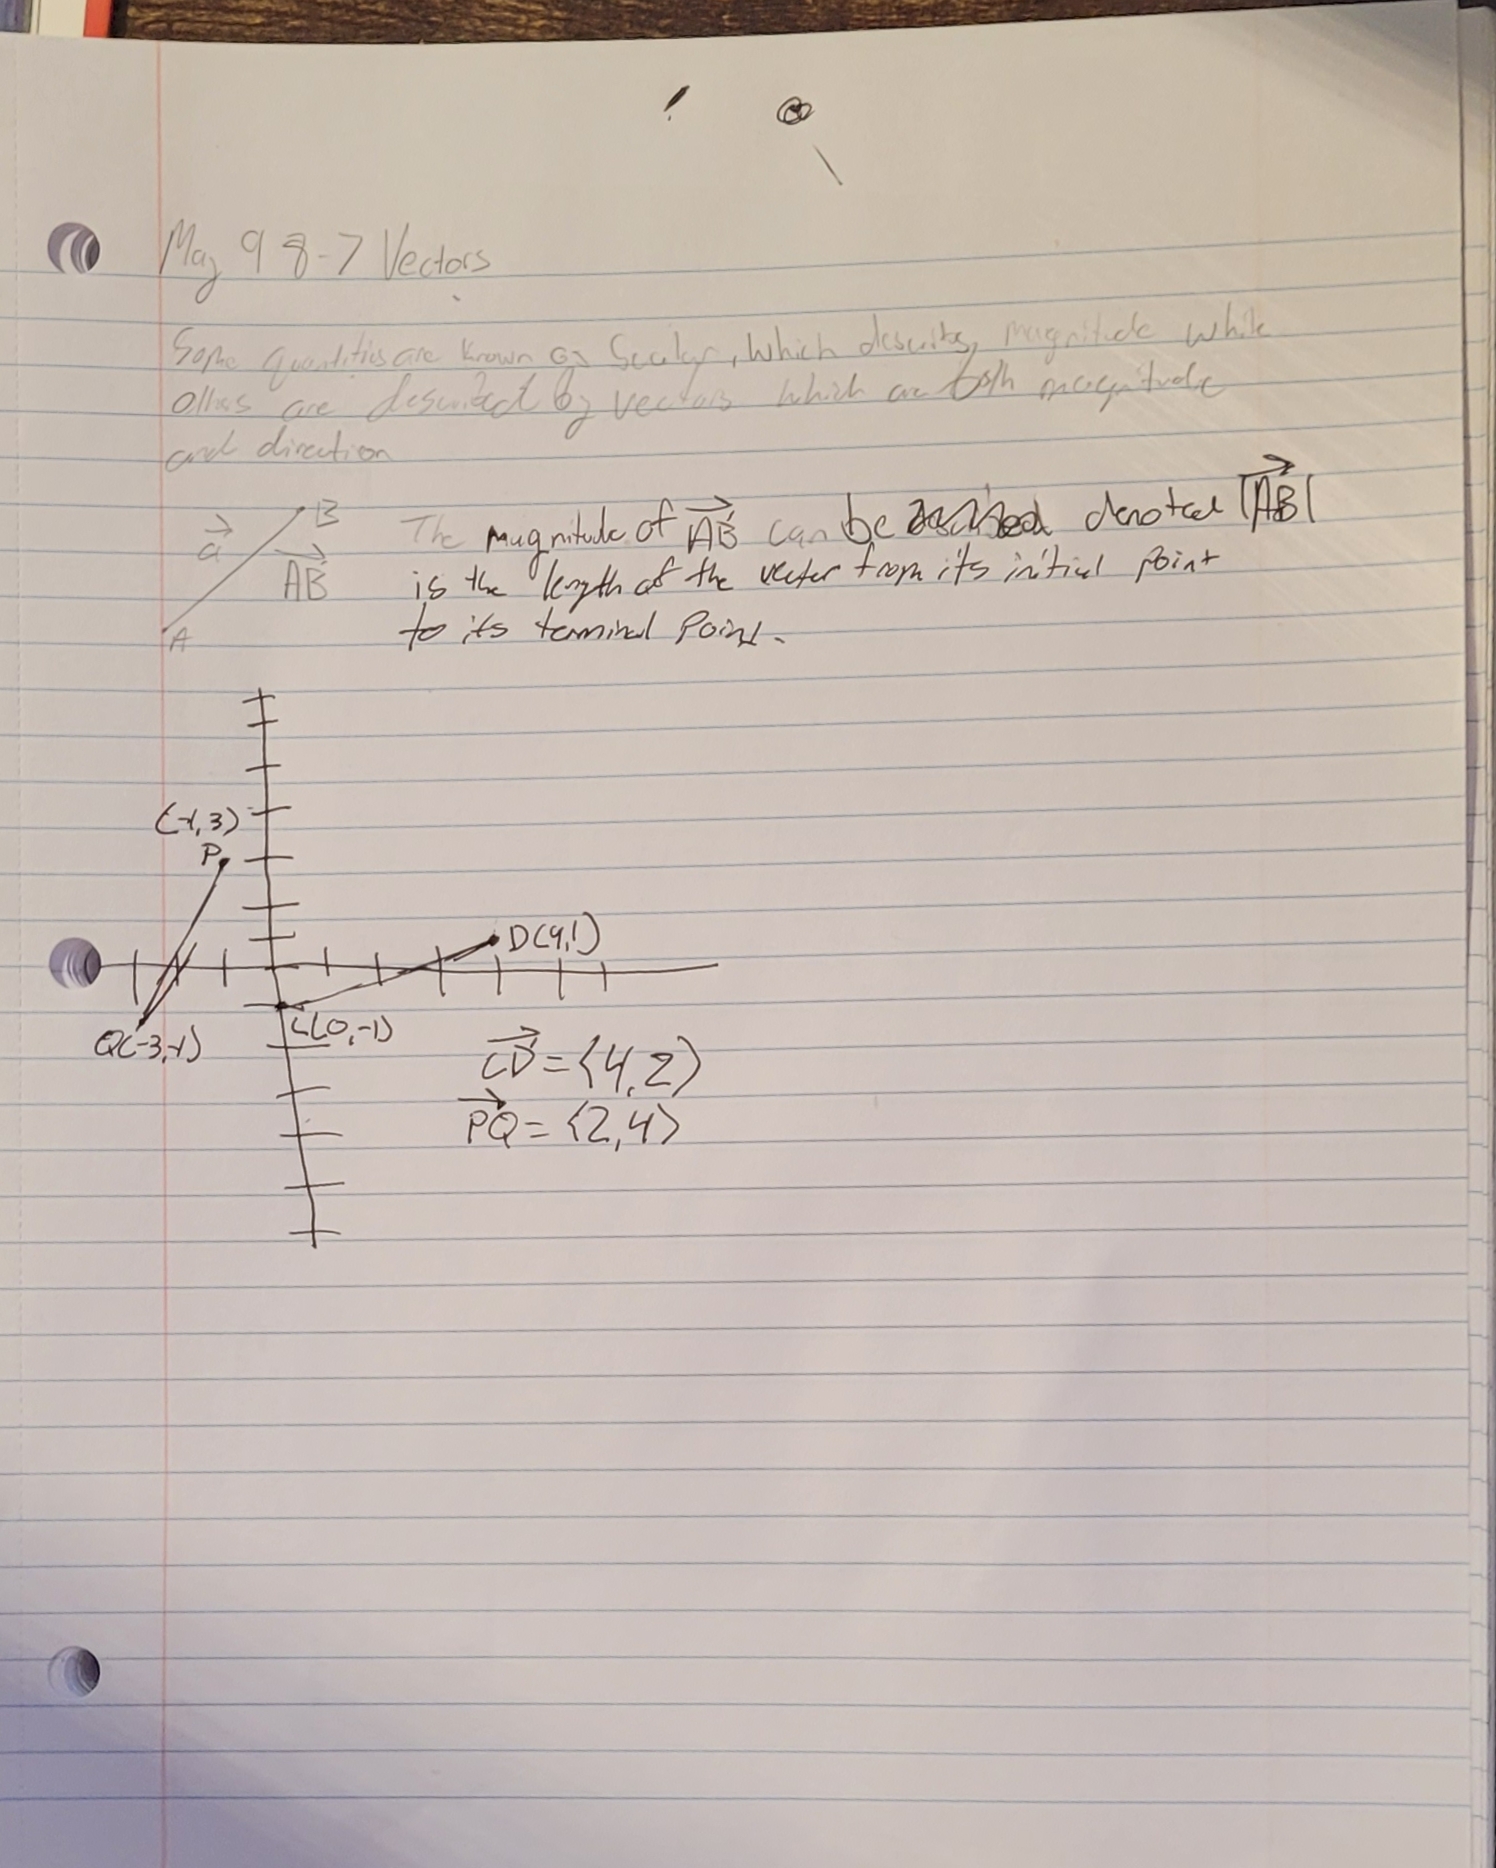 May 9 8-7 Vectors
Some quantities are known as Scalar, Which describes magnitude while
others are described by vectors which are both magnitude
and direction
B
a
AB
A
The magnitude of AB can be denoted |AB|
is the length of the vector from its initial point
to its terminal Point.
(-1,3)
P
D(4,1)
Q(-3,-1)
C(0,-1)
CD = ⟨4,2⟩
PQ = ⟨2,4⟩